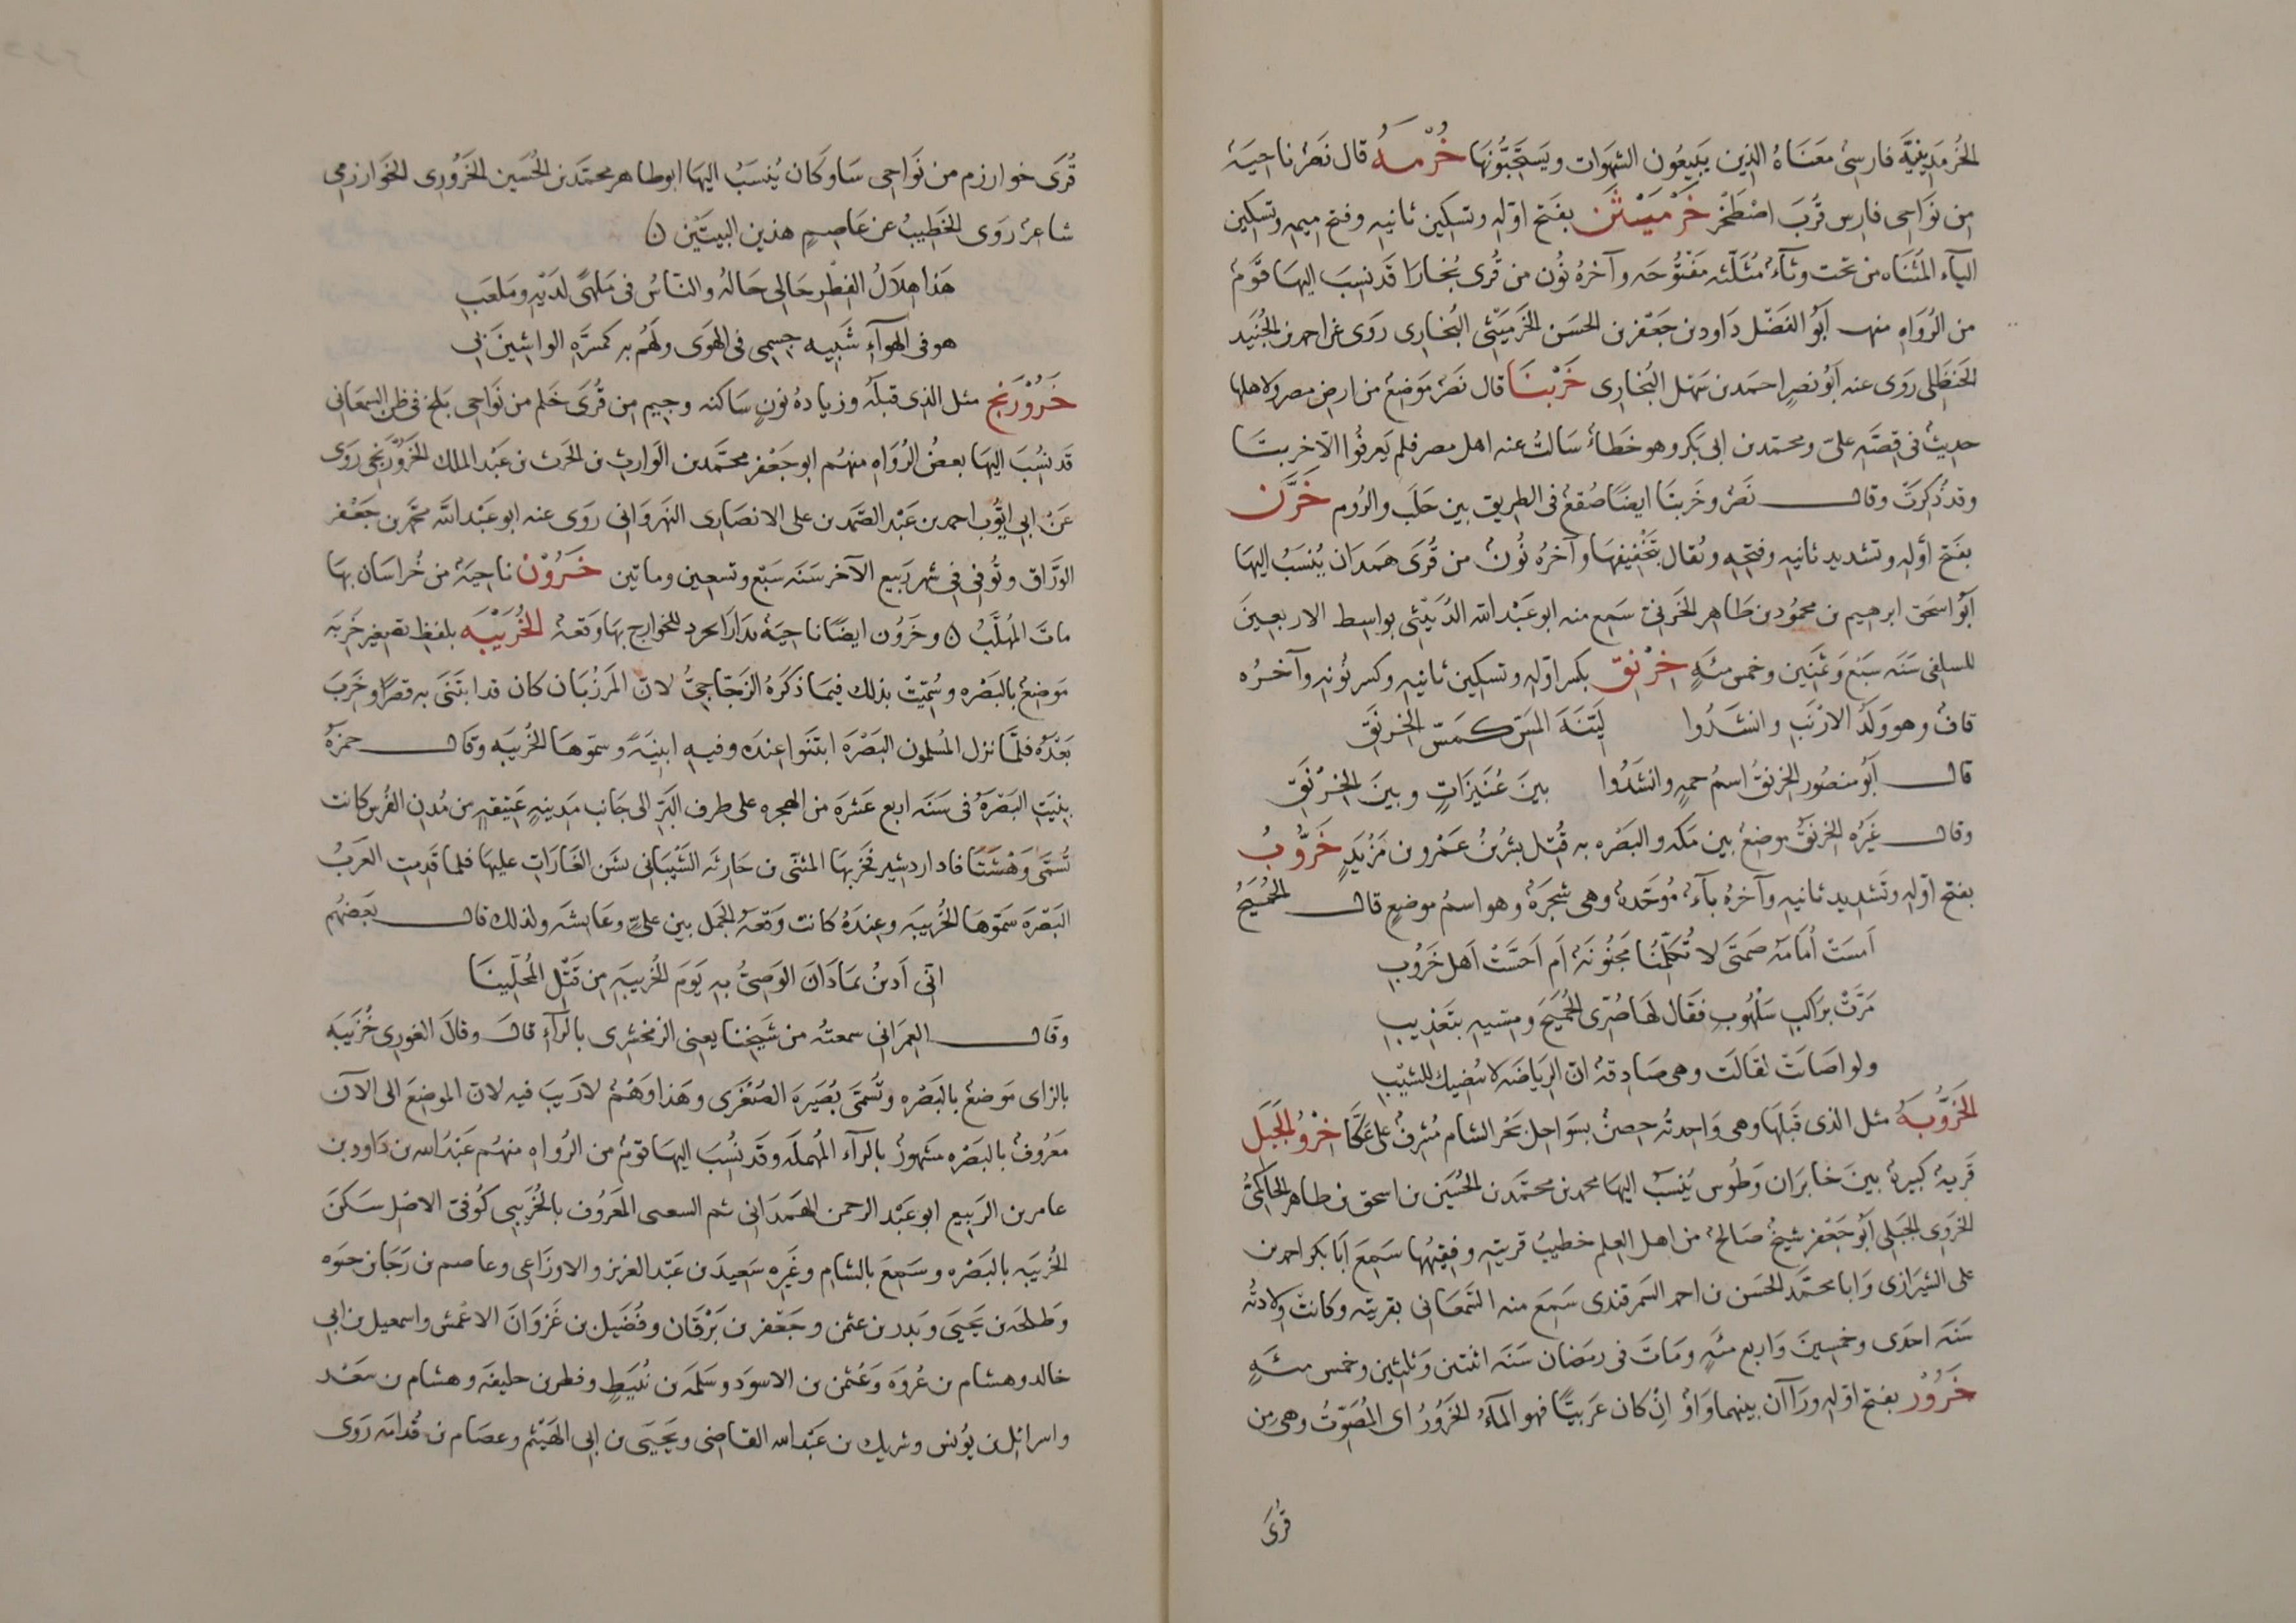 الخُرَّمَدِينِيَّة فارسىّ مَعنَاهُ الذِين يَتَّبِعُون الشَهوَات ويَستَحِبُّونَهَا خُرْمَهُ قال نَصْر نَاحِيَة
مِن نَوَاحِى فارِس قُربَ اصْطَخْر خَرْمَيْثَن بفَتح اوّلِهِ وتسكين ثانيهِ وفتح مِيمِهِ وتسكين
اليَآء المُثَنَاه من تحت وثَآء مُثَلّثه مَفتُوحَه وآخرهُ نُون من قُرى بُخارَا قَد نسِبَ اليهَا قَوْم
من الرُوَاهِ منهم أبُو الفَضْل دَاود بن جَعْفر بن الحسَن الخَرْمَيْثَنِى البُخارِى رَوَى عن احمد بن الجُنَيْد
الحَنظَلِى رَوى عنه أبُو نصرٍ احمَد بن سَهْل البُخارِى خَرْبتَا قال نَصْر مَوْضِع من ارضِ مصر ولاهلها
حديث فى قِصّهِ علىّ ومحمّد بن ابى بَكر وهو خَطَأ سَالتُ عنه اهل مصر فلم يَعرفُوا الّا خربتَا
وقد ذُكِرَت وقال نَصْر وخَربتَا ايضًا صُقعٌ فى الطريق بين حَلَب والرُوم خَرَّن
بفَتح أوّلِهِ وتشديد ثانيهِ وفتحِهِ ويُقال بتَخْفِيفِهَا وآخرُه نُون من قُرَى هَمَدَان يُنسَبُ اليهَا
أبُو اسحق ابرهيم بن محمُود بن طَاهِر الخَرَنى سَمِع منه ابو عَبْد الله الدُبَيْثِى بواسِط الاربعِينَ
للسلفى سَنَه سَبْع وَثمَنِين وخمس مئَهٍ خِرْنِق بكسر اوّلِهِ وتسكين ثانِيهِ وكسر نُونِهِ وآخرُه
قافٌ وهو وَلَد الارْنَبِ وانشَدُوا لَيّنَهَ المَسّ كَمَسّ الخِرْنِق
قال أبُو منصُور الخِرنقُ اسمُ حمهٍ وانشَدُوا بينَ عُنَيْزَاتٍ وبينَ الخِرْنِقِ
وقال غَيرُه الخِرنقُ موضِع بين مَكه والبَصْره بهِ قُتِل بِشْرُ بنُ عَمْرو بن مَرْثَدٍ خَرُّوبُ
بفتح اوّلِهِ وتَشدِيد ثانيهِ وآخرُه بآء مُوَحّده وهى شجَرَة وهو اسمُ موضعٍ قال الجُمَيْحُ
اَمسَت أُمَامَه صَمتَى لا تُكَلّمُنَا مَجنُونَة اَم اَحَسَّتْ اَهلَ خَرُوبِ
مَرّتْ برَاكِبِ سَلْهُوبٍ فقَال لَهَا ضُرِّى الجُمَيحَ ومسّيهِ بتَعذِيبِ
ولو اصَابَت لقَالَت وهى صَادِقه انّ الرِيَاضَه لا تُنصِبك للشيّبِ
الخَرُّوبَهُ مثل الذى قَبلَهَا وهى وَاحِدتُه حِصنٌ بسَوَاحِل بَحْر الشام مُشرفٌ على عَكّا خَرْوُ الجَبَل
قَريَة كَبيرة بينَ خابَرَان وَطُوس يُنسَبُ اليهَا محمد بن محمَّد بن الحُسَين بن اسحق بن طاهر الحَاكمىُّ
الخَرْوِى الجَبَلى أبُو جَعْفر شيخٌ صَالحٌ من اهل العِلم خطيبُ قريتِهِ وفقيهُها سَمِعَ اَبَا بَكر احمد بن
على الشِيرَازى وَابا محمَّد الحَسَن بن احمد السَمرقندى سَمِعَ منه السَّمعَانى بقريتِهِ وكانَت وِلَادَتُه
سَنَه احدَى وخمسِينَ وَاربع مئَهٍ ومَاتَ فى رمَضَان سَنَه اثنتين وَثلثين وخمس مئَهٍ
خَرُوْر بفتح اوّلهِ ورَاآن بينهما وَاوْ اِن كان عَرَبيًّا فهو المَآءُ الخَرُوْرُ اى المُصَوّتُ وهى مِن
قُرَى
قُرَى خوارزم من نَوَاحِى سَاوكَان يُنسَبُ اليها ابو طاهر محمّد بن الحُسَين الخَرُورِى الخوَارزمِى
شاعِر رَوَى الخَطِيبُ عن عَاصِمٍ هذين البيتَيْن ۞
هَذا هِلَالُ الفِطْرِ حَالِى حَالهُ والنّاسُ فى مَلهًى لدَيْهِ ومَلعَبِ
هو فى الهوَآءِ شَبِيه جِسمِى فى الهوَى ولَهُم بِهِ كَمسَرَّهِ الواشِينَ بِى
خَرُوْرَنْج مثل الذى قبلَه وزيادهُ نونٍ سَاكنه وجِيم مِن قُرَى خَلم من نَوَاحِى بَلخ فى ظن السمعَانى
قد نسُبَ اليهَا بعضُ الرُوَاهِ منهُم ابو جَعْفر محمّد بن الوَارِث بن الحَرث بن عَبْد الملك الخَرُوْرَنْجِى رَوَى
عَن ابى ايّوُب احمد بن عَبْد الصَّمَد بن على الانصَارى النهرَوَانى رَوَى عنه ابو عَبْد الله محمّد بن جَعْفر
الورّاق وتُوفى فى شهر رَبيع الآخر سَنَه سَبْع وتسعين وماتين خَرُوْنُ ناحِيَة من خُراسَان بهَا
ماتَ المُهَلّبُ ۞ وخَرُون ايضًا ناحيَة بدَارَابجرد للخوارج بهَا وَقعهُ الخُرَيْبَه بلفظ تصغِير خَربَه
مَوضِعٌ بالبَصْره وسُمِّيَت بذلك فيمَا ذكَرَهُ الزجّاجِىُّ لانّ المَرزُبَان كان قد ابتَنَى بهِ قصرًا وخَربَ
بَعْدَه فلمَّا نزل المُسلِمُون البَصْرَه ابتَنَوا عِندَه وفيهِ ابنِيَهً وسمّوهَا الخُرَيبَه وقال حمزَةُ
بِنيَتِ البَصْرَهُ فى سَنَه اربع عَشرَه من الهجره على طرف البَرّ الى جَانب مَدِينهٍ عَتِيقهٍ من مُدنِ الفُرْس كانت
تُسَمَّى وَهْشَتَا فاد اردشير فخَرّبهَا المثنّى بن حَارثَه الشَيْبَانى بشَن الغَارَاتِ عليهَا فلما قَدِمتِ العَرَبُ
البَصْرَه سَمّوهَا الخُرَيبَه وعِندَهُ كانت وَقْعَه الجَمل بين علىٍّ وعَايشَه ولذلك قال بَعضُهُم
اِنّى أدِينُ بمَا دَانَ الوَصِىُّ بهِ يَومَ الخُرَيبَهِ مِن قَتْلِ المُحِلّينَا
وقَال العِمرَانى سمعتُه من شَيخِنَا يعنِى الزمخشَرِى بالرآءِ قال وقَالَ الغورِى خُزَيبَه
بالزاى مَوضعٌ بالبَصْره وتُسَمَّى بُصَيرَه الصُغْرَى وهَذا وَهْمٌ لا رَيبَ فيه لانّ الموضعَ الى الآن
مَعرُوفٌ بالبَصْره مشهورٌ بالرآء المُهملَه وقَد نسُبَ اليهَا قومٌ من الرُواهِ منهُم عَبْدُ الله بن دَاود بن
عامر بن الرَبِيع ابو عَبْد الرحمن الهَمدَانى ثم الشعبى المعرُوف بالخُرَيبِى كُوفىّ الاصْل سَكنَ
الخُرَيبَه بالبَصْره وسَمِعَ بالشامِ وغَيره سَعِيدَ بن عَبْد العزيز والاوزَاعِى وعاصم بن رَجَا بن حيوه
وَطلحَه بن يَحيَى وبَدر بن عثمن وجَعْفر بن بَرْقَان وفُضَيل بن غَزوَانَ الاعْمَش واسمعيل بن ابى
خالد وهشام بن عُروَه وَعُثمن بن الاسوَد وسَلمَه بن نُبَيْطٍ وفطر بن خليفَه وهشام بن سَعْد
واسرائيل بن يُونس وشريك بن عَبْد الله القاضِى ويَحيَى بن ابى الهَيْثم وعصَام بن قُدامَه رَوَى